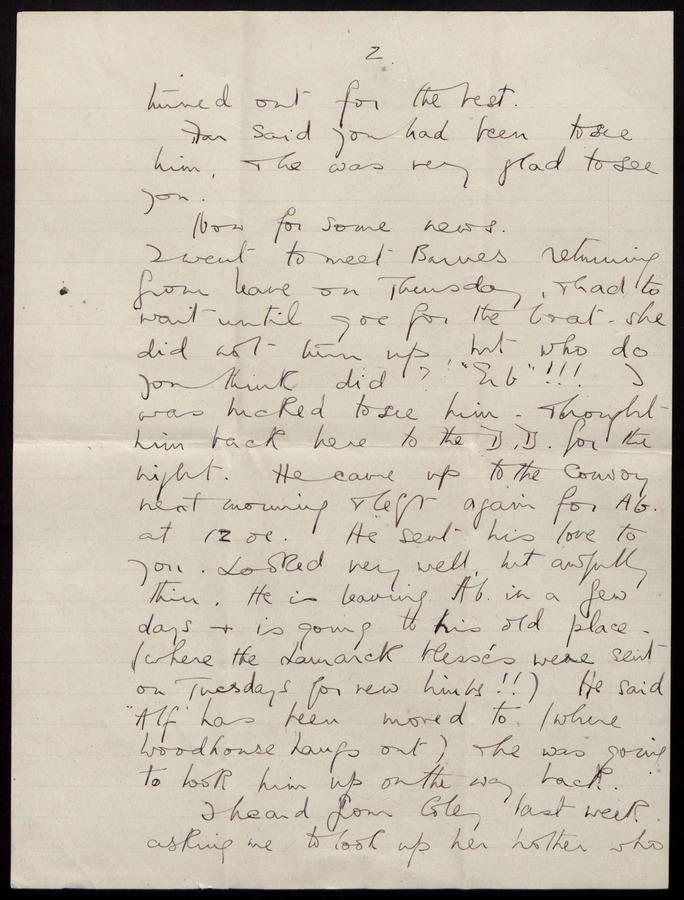 2.
turned out for the best.
Fan said you had been to see
him, & he was very glad to see
you.
Now for some news.
I went to meet Barnes returning
from leave on Thursday, & had to
wait until 9oc for the boat - she
did not turn up, but who do
you think did? "Erb"!!! I
was bucked to see him - & brought
him back here to the D.D. for the
night. He came up to the Convoy
next morning & left again for Ab.
at 12 oc. He sent his love to
you. Looked very well, but awfully
thin. He is leaving Ab. in a few
days & is going to his old place -
(where the Lamarck blessés were sent
on Tuesdays for new limbs!!) He said
"Alf" has been moved to (where
Woodhouse hangs out) & he was going
to look him up on the way back.
I heard from Coley last week.
asking me to look up her brother who